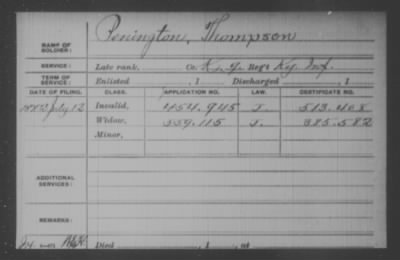 NAME OF SOLDIER: Penington, Thompson
SERVICE: Late rank, Co. K, 9 Reg't Ky. Inf.
TERM OF SERVICE: Enlisted , 1 Discharged , 1
DATE OF FILING. CLASS. APPLICATION NO. LAW. CERTIFICATE NO.
July 12 Invalid, 454.945 J. 513.408
Widow, 559.115 J. 385.582
Minor,
ADDITIONAL SERVICES:
REMARKS:
Died , 1 , at